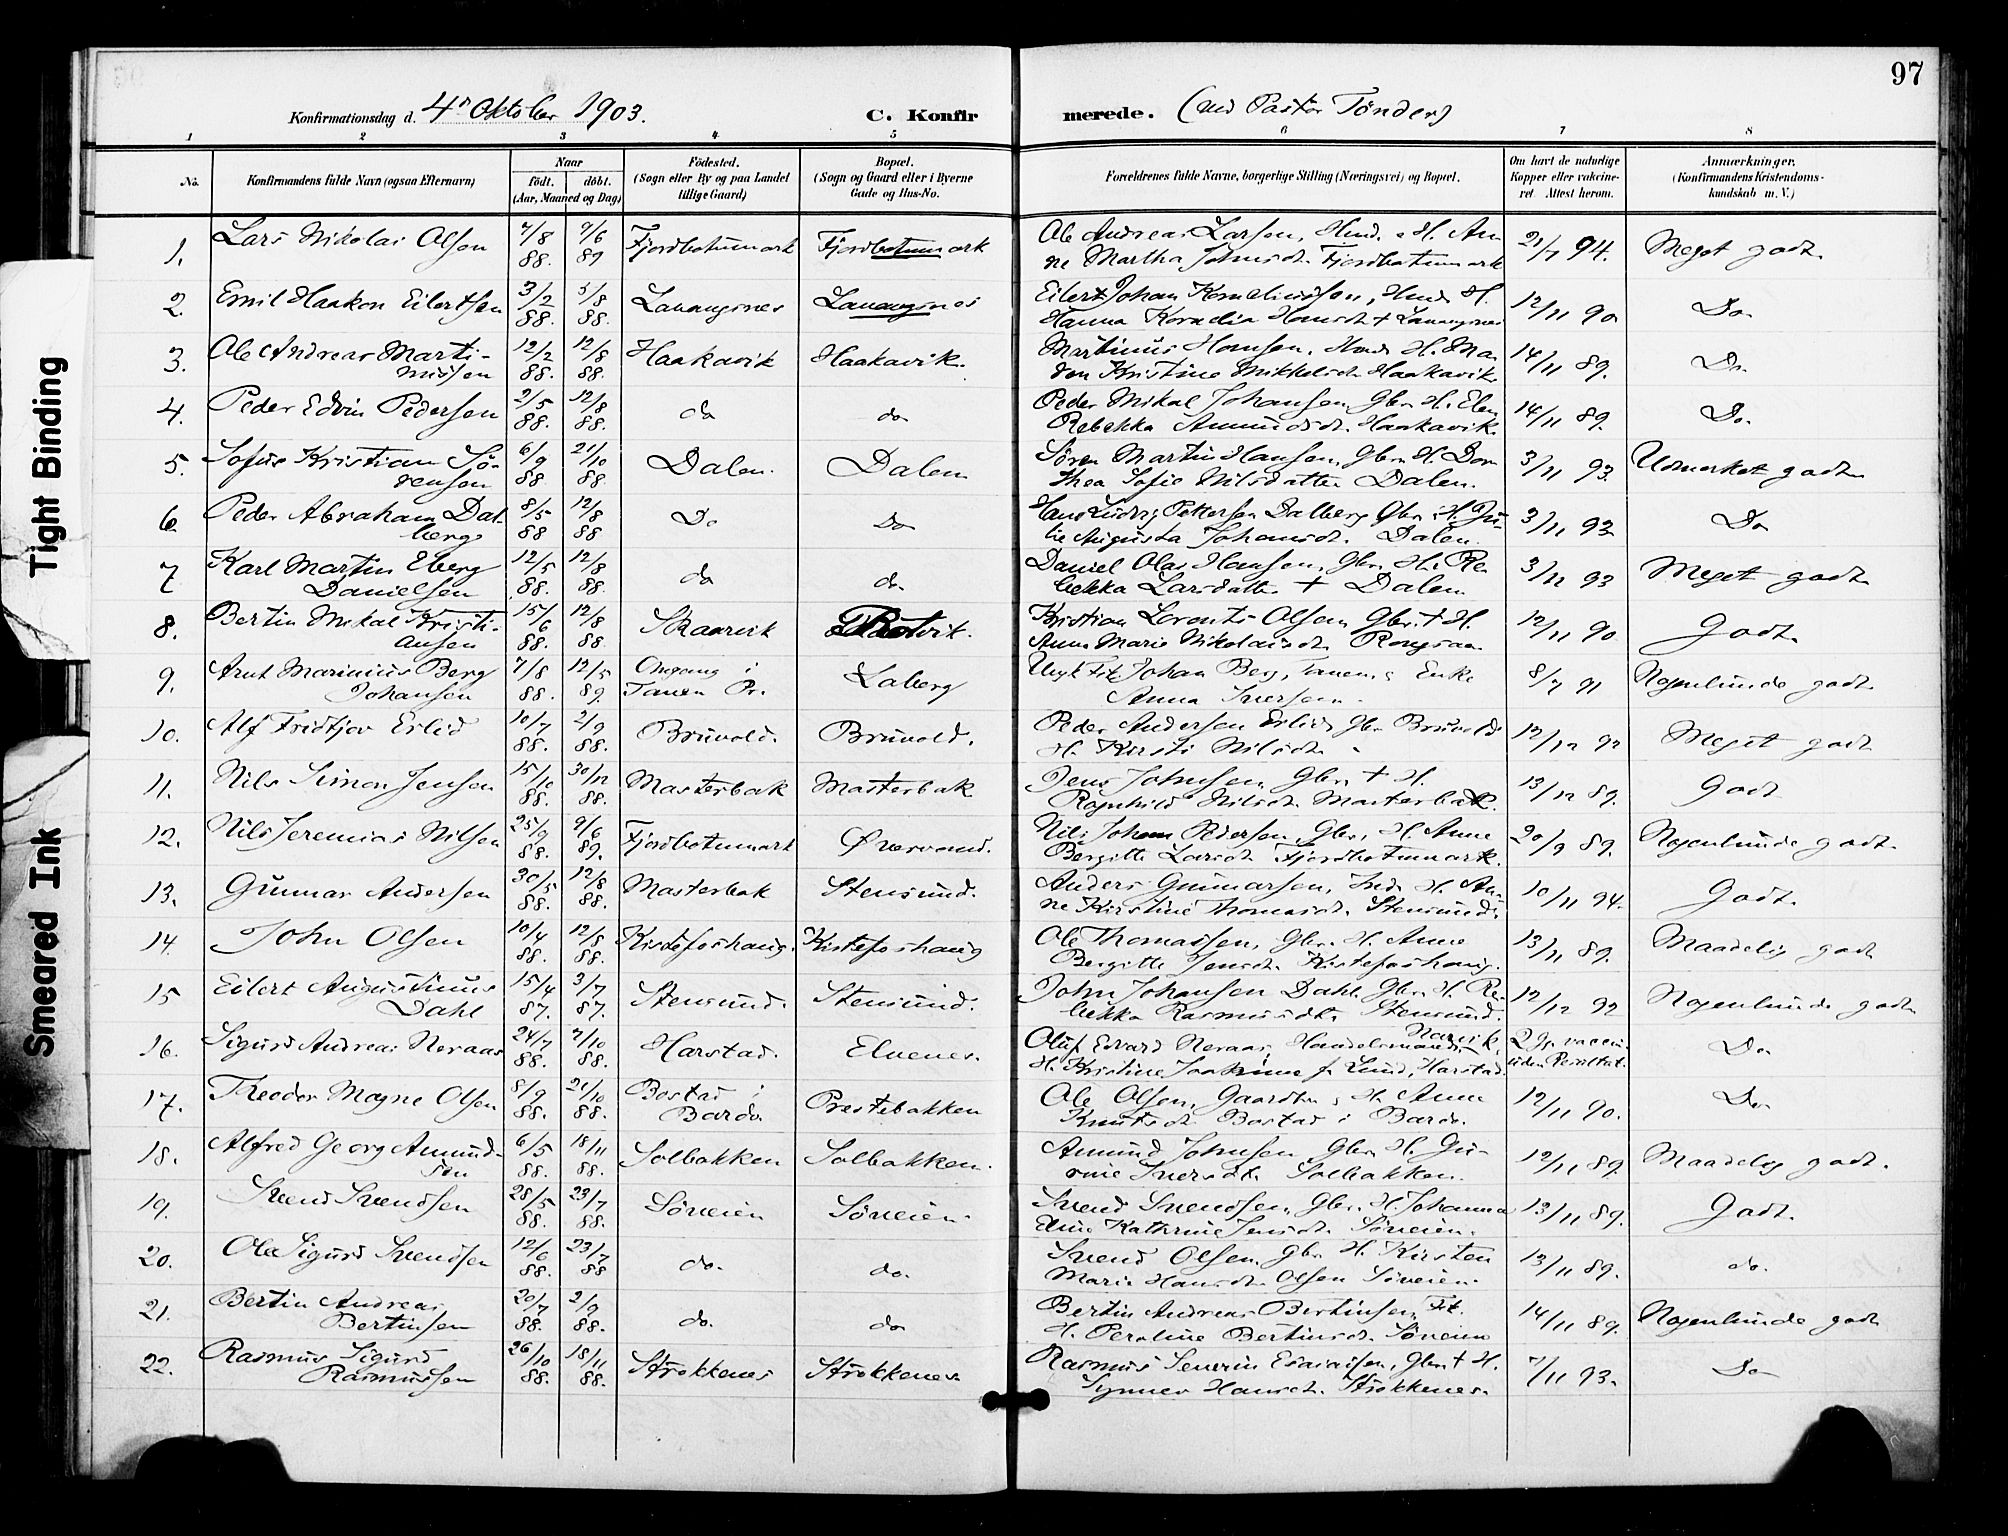 97
Konfirmationsdag d. 4de Oktober 1903. C. Konfirmerede. (ved Pastor Tønder)
1 2 3 4 5 6 7 8
No. Konfirmandens fulde Navn (ogsaa Efternavn) Naar født. døbt. (Aar, Maaned og Dag) Fødested. (Sogn eller By og paa Landet tillige Gaard) Bopæl. (Sogn og Gaard eller i Byerne Gade og Hus-No. Forældrenes fulde Navne, borgerlige Stilling (Næringsvei) og Bopæl. Om havt de naturlige Kopper eller vaccineret Attest herom. Anmærkninger. (Konfirmandens Kristendomskundskab m. V.)
1. Lars Nikolai Olsen 7/8 88. 9/6 89 Fjordbotnmark Fjordbotnmark Ole Andreas Larsen, Hmd. & H. An
ne Martha Johnsdt. Fjordbotnmark 21/7 94. Meget godt.
2. Emil Haakon Eilertsen 3/2 88. 5/8 88. Lavangsnes Lavangsnes Eilert Johan Korneliussen, Hmd. H.
Hanna Kornelia Hansdt + Lavangsnes 12/11 90. Do
3. Ole Andreas Marti-
nussen 12/2 88. 12/8 88. Haakavik Haakavik. Martinus Hansen. Hmd. H. Ma
ren Kristine Mikkelsdt. Haakavik. 14/11 89. Do.
4. Peder Edvin Pedersen 2/5 88. 12/8 88. do do. Peder Mikal Johansen, Gbr. H. Elen
Rebekka Amundsdt. Haakavik. 14/11 89. Do.
5. Sofus Kristian Sø-
rensen 6/9 88 21/10 88. Dalen. Dalen Søren Martin Hansen, Gbr. H. Dor
thea Sofie Nilsdatter Dalen. 3/11 93. Udmerket godt
6. Peder Abraham Dal-
berg 8/5 88 12/8 88 Do do Hans Ludvig Pettersen Dalberg Gbr. H. Ju
lie Augusta Johansdt. Dalen. 3/11 93 Do
7 Karl Martin Eberg
Danielsen 12/5 88. 12/8 88. do do. Daniel Olai Hansen, Gbr. H. Re
bekka Larsdatter + Dalen 3/11 93 Meget godt
8. Bertin Mikal Kristi-
ansen 15/6 88. 12/8 88 Skaarvik Kristian Lorents Olsen Gbr. + H.
Anna Marie Nikolaisdt. 12/11 90. Godt.
9. Arnt Marinius Berg
Johansen 7/8 88. 12/5 89. i
Tanen Pr. Laberg Ungk. Johan Berg, Tanen, & Enke
Anna Iversen. 8/7 91 Nogenlunde godt
10. Alf Fridtjov Erlid 10/7 88. 2/9 88. Bruvold. Bruvold. Peder Andersen Erlid Gbr. Bruvold
H. Kirsti Nilsdt. 12/12 92 Meget godt
11. Nils Simon Jensen 15/10 88. 30/12 88. Masterbak Masterbak Jens Johnsen, Gbr. + H.
Ragnhild Nilsdt. Masterbak. 13/12 89. Godt
12. Nils Jeremias Nilsen 25/9 88. 9/6 89. Fjordbotnmark Øvervand. Nils Johan Pedersen, Gbr. H. Anne
Bergitte Larsdt. Fjordbotnmark. 20/9 89. Nogenlunde godt.
13. Gunnar Andersen 30/5 88. 12/8 88. Masterbak Stensund. Anders Gunnarsen, Ind. H. An-
ne Kirstine Thomasdt. Stensund. 10/11 94. Godt.
14. John Olsen 10/4 88. 12/8 88. Kistefoshaug. Kistefoshaug Ole Thomassen, Gbr. H. Anne
Bergitte Jensdt. Kistefoshaug. 13/11 89. Maadelig godt
15 Eilert Augustinus
Dahl 15/4 87. 3/7 87. Stensund. Stensund. John Johansen Dahl. Gbr. H. Re-
bekka Rasmusdt. Stensund. 12/12 92 Nogenlunde godt
16. Sigurd Andreas Neraas 24/7 88. 7/10 88. Harstad. Elvenes. Oluf Edvard Neraas, Handelsmand, Narvik,
H. Kristine Joakime f. Lund, Harstad. 2 Gg. vaccin.
uden Resultat. Do
17. Theodor Magne Olsen 8/9 88. 21/10 88. Bostad i
Bardo. Prestebakken Ole Olsen, Gaardbr. & H. Anne
Knutsdt. Bostad i Bardo. 12/11 90. Do
18. Alfred Georg Amund-
sen 6/5 88. 18/11 88. Solbakken Solbakken. Amund Johnsen Gbr. H. Gu-
rine Iversdt. Solbakken. 12/11 89. Maadelig godt.
19. Svend Svendsen 28/5 88. 23/7 88. Sørveien Sørveien. Svend Svendsen, Gbr. H. Johanna
Eline Kathrine Jensdt. Sørveien. 13/11 89. Godt.
20. Ole Sigurd Svendsen 12/6 88. 23/7 88 do. do. Svend Olsen, Gbr. H. Kirsten
Marie Hansdt. Olsen Sørveien. 13/11 89. do.
21. Bertin Andreas
Bertinsen 20/7 88. 2/9 88. do. do Bertin Andreas Bertinsen, Fst.
H. Peroline Bertinsdt. Sørveien 14/11 89. Nogenlunde godt
22. Rasmus Sigurd
Rasmussen 26/10 88. 18/11 88. Strokkenes Strokkenes Rasmus Severin Esaiassen, Gbr. + H.
Synnev Hansdt. Strokkenes. 7/11 93. Do
Tight Binding
Smeared Ink